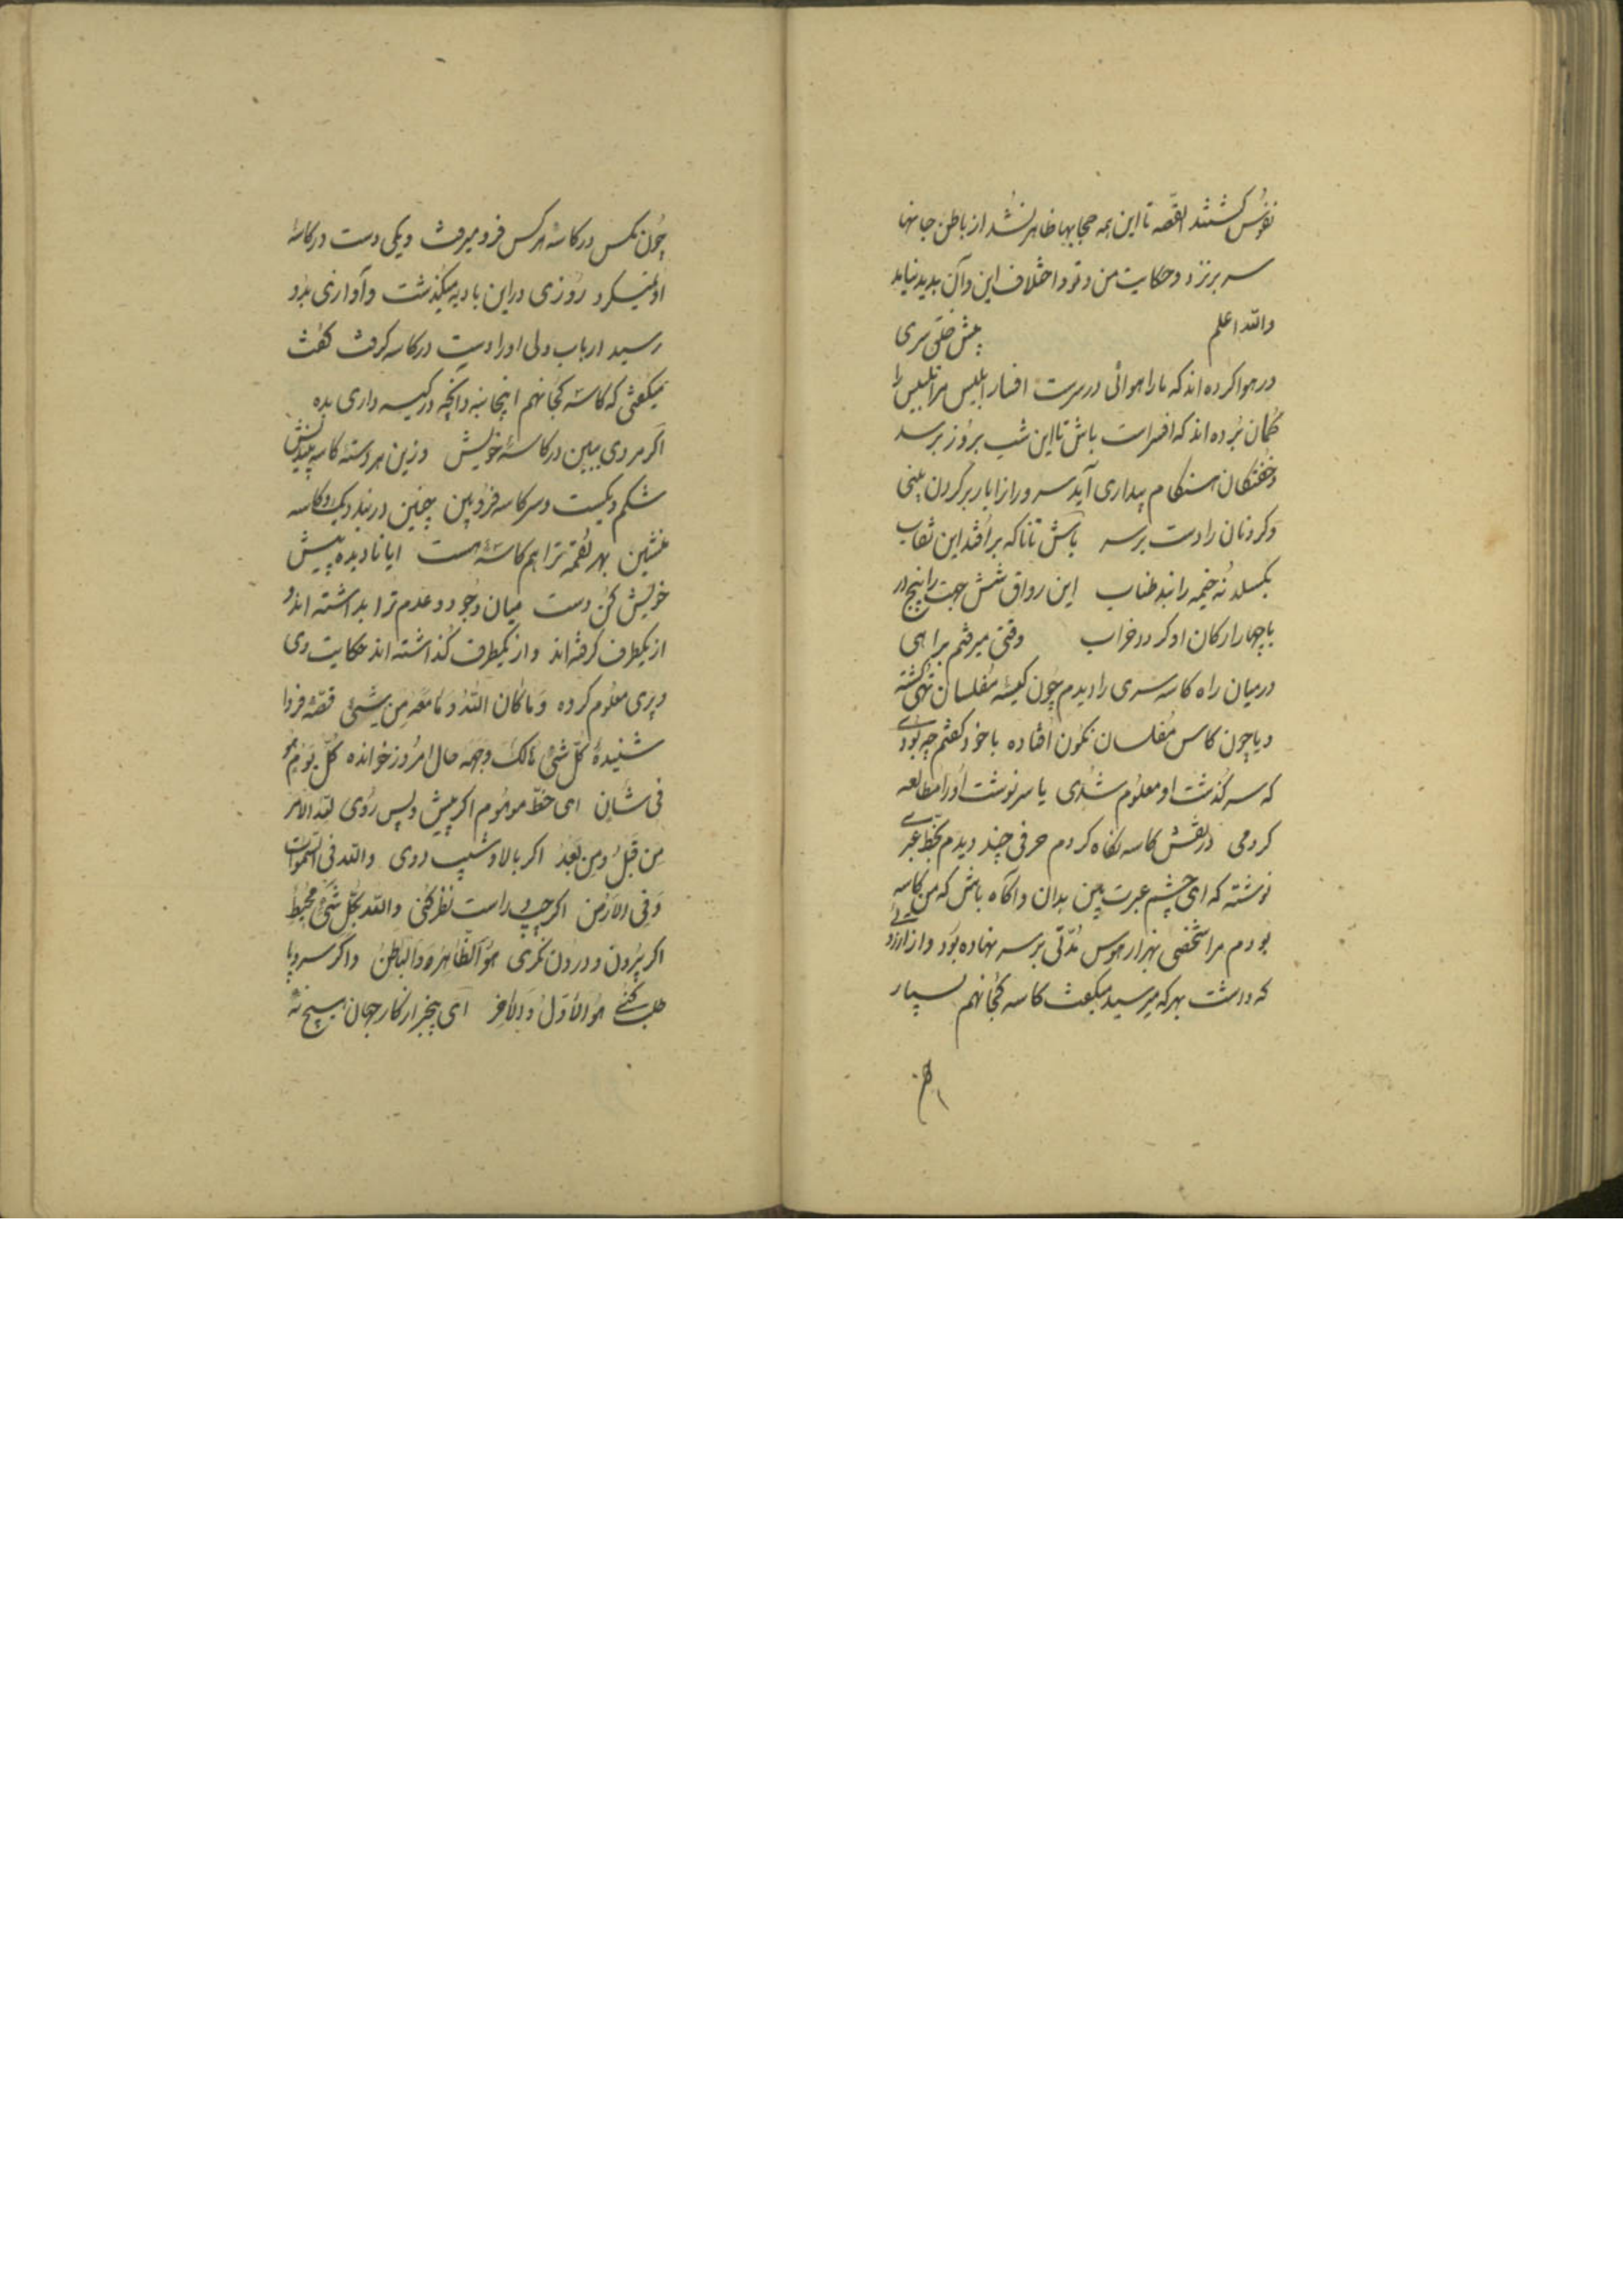 نفوس کشتند القصه تا این همه حجابها ظاهر نشد از باطن جانها
سر برنزد و حکایت من و تو و اختلاف این و آن پدید نیاید
والله اعلم پیش خلقی سری
در هوا کرده اند که ما را هوائی در سرست افسار ابلیس مر تلبیس را
کمان برده اند که افسرست باش تا این شب بروز برسد
و خفتکان هنکام بیداری آید سرورانرا بار بر کردن بینی
و کردنان را دست بر سر باش تا ناکه بر افتد این نقاب
بکسلد نه خیمه را بند طناب این رواق شش جهت را پنج در
با چهار ارکان او کردد خراب وقتی میرفتم براهی
در میان راه کاسه سری را دیدم چون کیسه مفلسان تهی کشته
و یا چون کاس مفلسان نکون افتاده با خود کفتم چه بودی
که سرکذشت او معلوم شدی یا سرنوشت او را مطالعه
کردمی در نقش کاسه نکاه کردم حرفی چند دیدم بخط عبری
نوشته که ای چشم عبرت بین بدان و آکاه باش که من کاسه
بودم مرا شخصی بهزار هوس مدتی بر سر نهاده بود و از آرزو
که داشت بهر که میرسید میکفت کاسه کجا نهم بسیار
چون مکس در کاسه هر کس فرو میرفت و یکی دست در کاسه
او نمیکرد روزی در این بادیه میکذشت و آوازی بدو
رسید ارباب دلی او را دست در کاسه کرفت کفت
میکفتی که کاسه کجا نهم اینجا بنه و آنچه در کیسه داری بده
اکر مردی ببین در کاسه خویش وزین هر دسته کاسه میندیش
شکم دیکست و سر کاسه فرو بین چنین در بند دیک و کاسه
منشین بهر لقمه ترا هم کاسه هست ایا نادیده پیش
خویش کن دست میان وجود و عدم ترا بداشته اند و
از یکطرف کرفته اند و از یکطرف کذاشته اند حکایت دی
و پری معلوم کرده و ما کان الله و ما معه من شیئ قصه فردا
شنیده کل شئ هالک الا وجهه حال امروز خوانده کل یوم هو
فی شان ای خط موهوم اکر پیش و پس روی لله الامر
من قبل و من بعد اکر بالا و شیب روی و الله فی السموات
و فی الارض اکر چپ و راست نظر کنی و الله بکل شئ محیط
اکر بیرون و درون نکری هو الظاهر و الباطن و اکر سر و پا
طلب کنی هو الاول و الآخر ای بیخبر از کار جهان هیچ نه